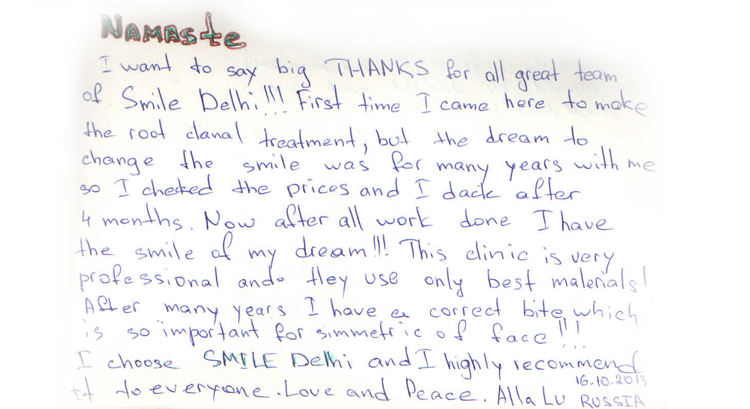 NAMASte
I want to say big THANKS for all great team
of Smile Delhi!!! First time I came here to make
the root clanal treatment, but the dream to
change the smile was for many years with me
so I checked the prices and I dack after
4 months. Now after all work done I have
the smile of my dream!!! This clinic is very
professional and they use only best materials!
After many years I have a correct bite, which
is so important for simmetric of face!!!
I choose SMILE Delhi and I highly recommend
it to everyone. Love and Peace. Alla Lu
16.10.2013
RUSSIA